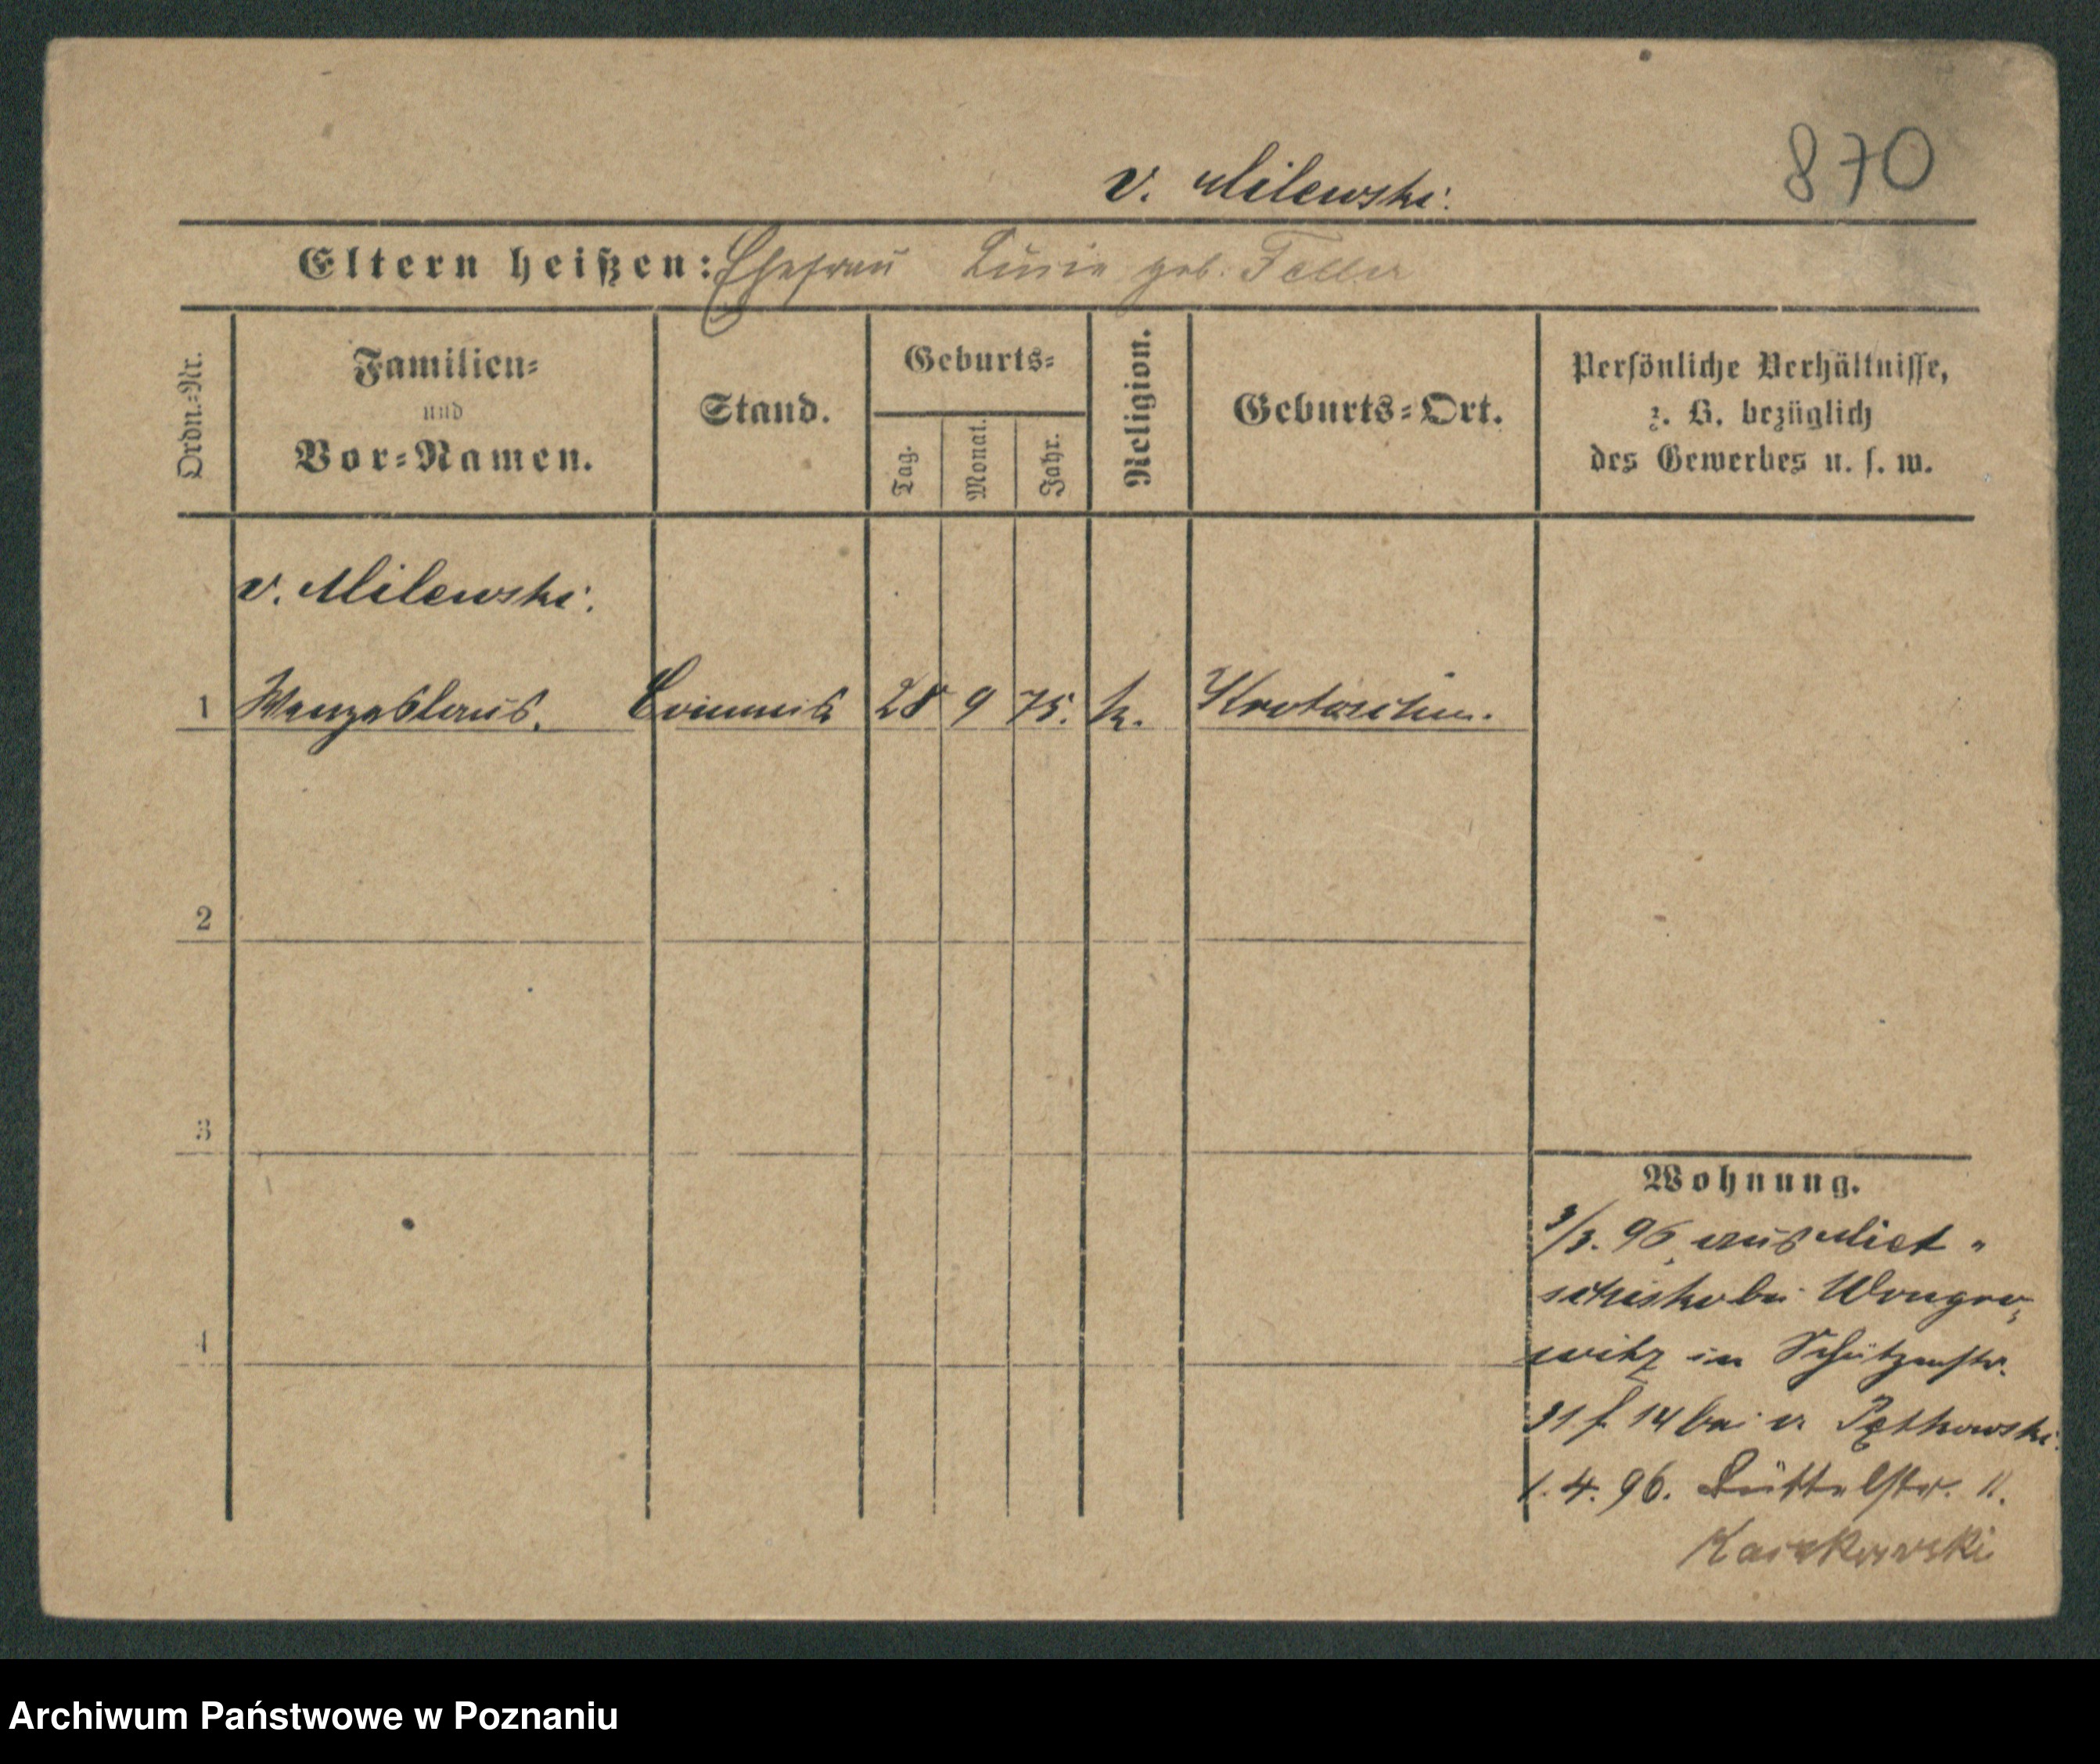 870
v. Milewski.
Eltern heißen: Ehefrau Lucie geb. Feller
Ordn.-Nr.
Familien-
und
Vor-Namen.
Stand.
Geburts-
Tag.
Monat.
Jahr.
Religion.
Geburts-Ort.
Persönliche Verhältnisse,
z. B. bezüglich
des Gewerbes u. s. w.
v. Milewski.
1 Wenzeslaus. Commis 28 9 75. k. Krotoschin.
2
3
4
Wohnung.
3/3. 96 aus Miet-
schisko bei Wongro-
witz in Schützenstr.
31 f. 14 bei v. Pętkowski.
1. 4. 96. Büttelstr. 11.
Kaczkowski
Archiwum Państwowe w Poznaniu